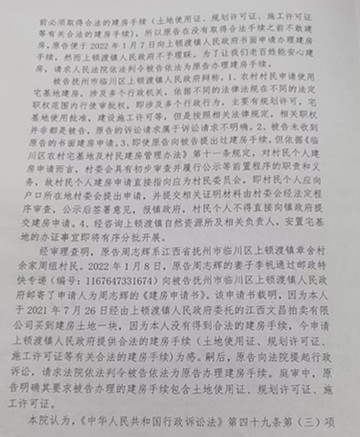 前必须取得合法的建房手续（土地使用证、规划许可证、施工许可证
等有关合法的建房手续），所以原告在没有取得合法手续之前不敢建
房。原告便于 2022 年 1 月 7 日向上顿渡镇人民政府书面申请办理建房
手续，然而上顿渡镇人民政府不予理睬。为了让我们老百姓能安心建
房，请求人民法院依法判令被告依法为原告办理建房手续。
被告抚州市临川区上顿渡镇人民政府辩称，1、农村村民申请使用
宅基地建房，涉及多个行政机关，依据不同的法律法规在不同的法定
职权范围内行使审批权，即涉及多个行政行为，主要有规划许可，宅
基地使用批准，建设施工许可等，但是按照相关法律规定，相关职权
并非都是被告，原告的诉讼请求属于诉讼请求不明确。2、被告未收到
原告的书面建房申请。3、即使原告向被告提出过建房手续，但依《临
川区农村宅基地及村民建房管理办法》第十一条规定，对村民个人建
房申请而言，村委会具有初步审查并履行公示等前置程序的职责和义
务，故村民个人建房申请直接指向应为村民委员会，即村民个人应向
户口所在地村委会提出申请，并提交相关证明材料由村委会经法定程
序审查，公示后签署意见，报镇政府，村民个人不得直接向镇政府提
交建房申请。4、经咨询上顿渡镇自然资源所及相关负责人，安置宅基
地的办证事宜即将有序分批开展。
经审理查明，原告周志辉系江西省抚州市临川区上顿渡镇章舍村
余家周组村民。2022 年 1 月 8 日，原告周志辉的妻子李帆通过邮政特
快专递（编号：1167647331674）向被告抚州市临川区上顿渡镇人民政
府邮寄了申请人为周志辉的《建房申请书》。该申请书载明，因为本人
于 2021 年 7 月 26 日经由上顿渡镇人民政府委托的江西文昌拍卖有限
公司买到建房土地一块，因为本人没有得到合法的建房手续，今申请
上顿渡镇人民政府提供合法的建房手续（土地使用证、规划许可证、
施工许可证等有关合法的建房手续）为感。嗣后，原告向法院提起行政
诉讼，请求法院依法判令被告依法为原告办理建房手续。庭审中，原
告明确其要求被告办理的建房手续包含土地使用证、规划许可证、施
工许可证。
本院认为，《中华人民共和国行政诉讼法》第四十九条第（三）项